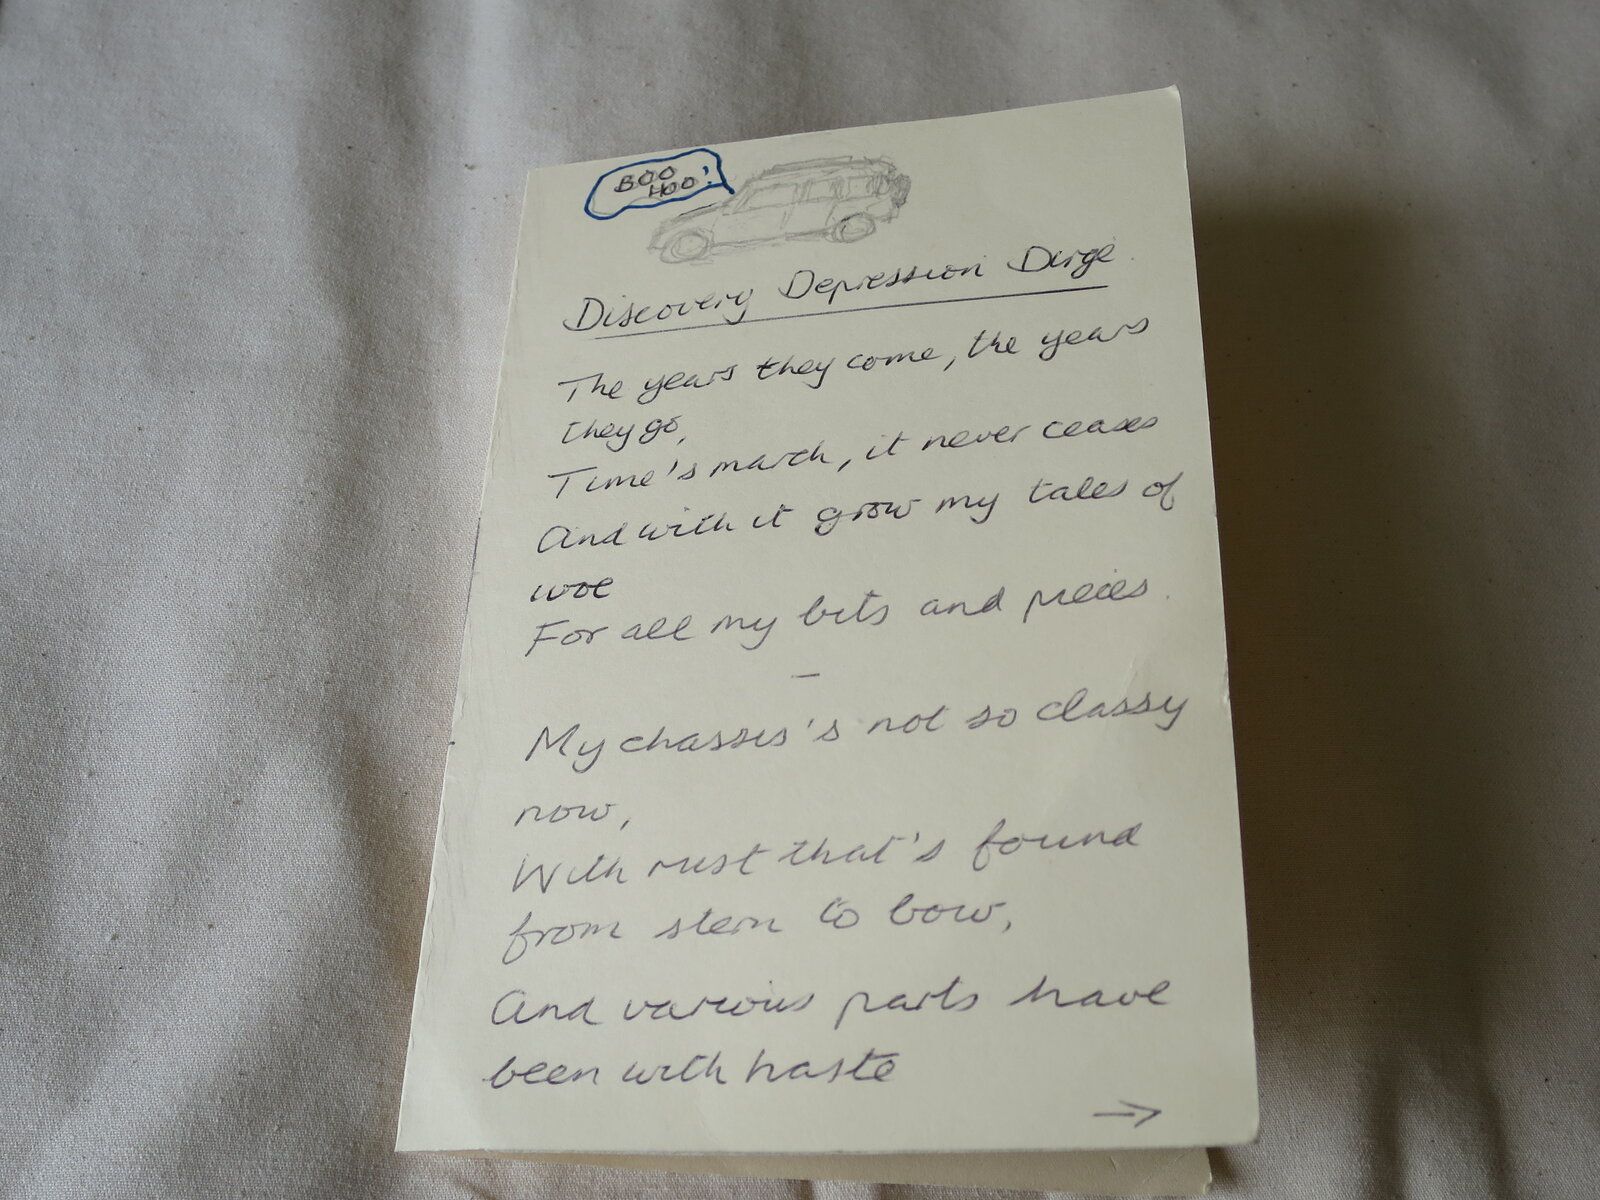 BOO
HOO!
Discovery Depression Dirge
The years they come, the years
they go,
Time's march, it never ceases
And with it grow my tales of
woe
For all my bits and pieces.
–
My chassis's not so classy
now,
With rust that's found
from stern to bow,
And various parts have
been with haste
→